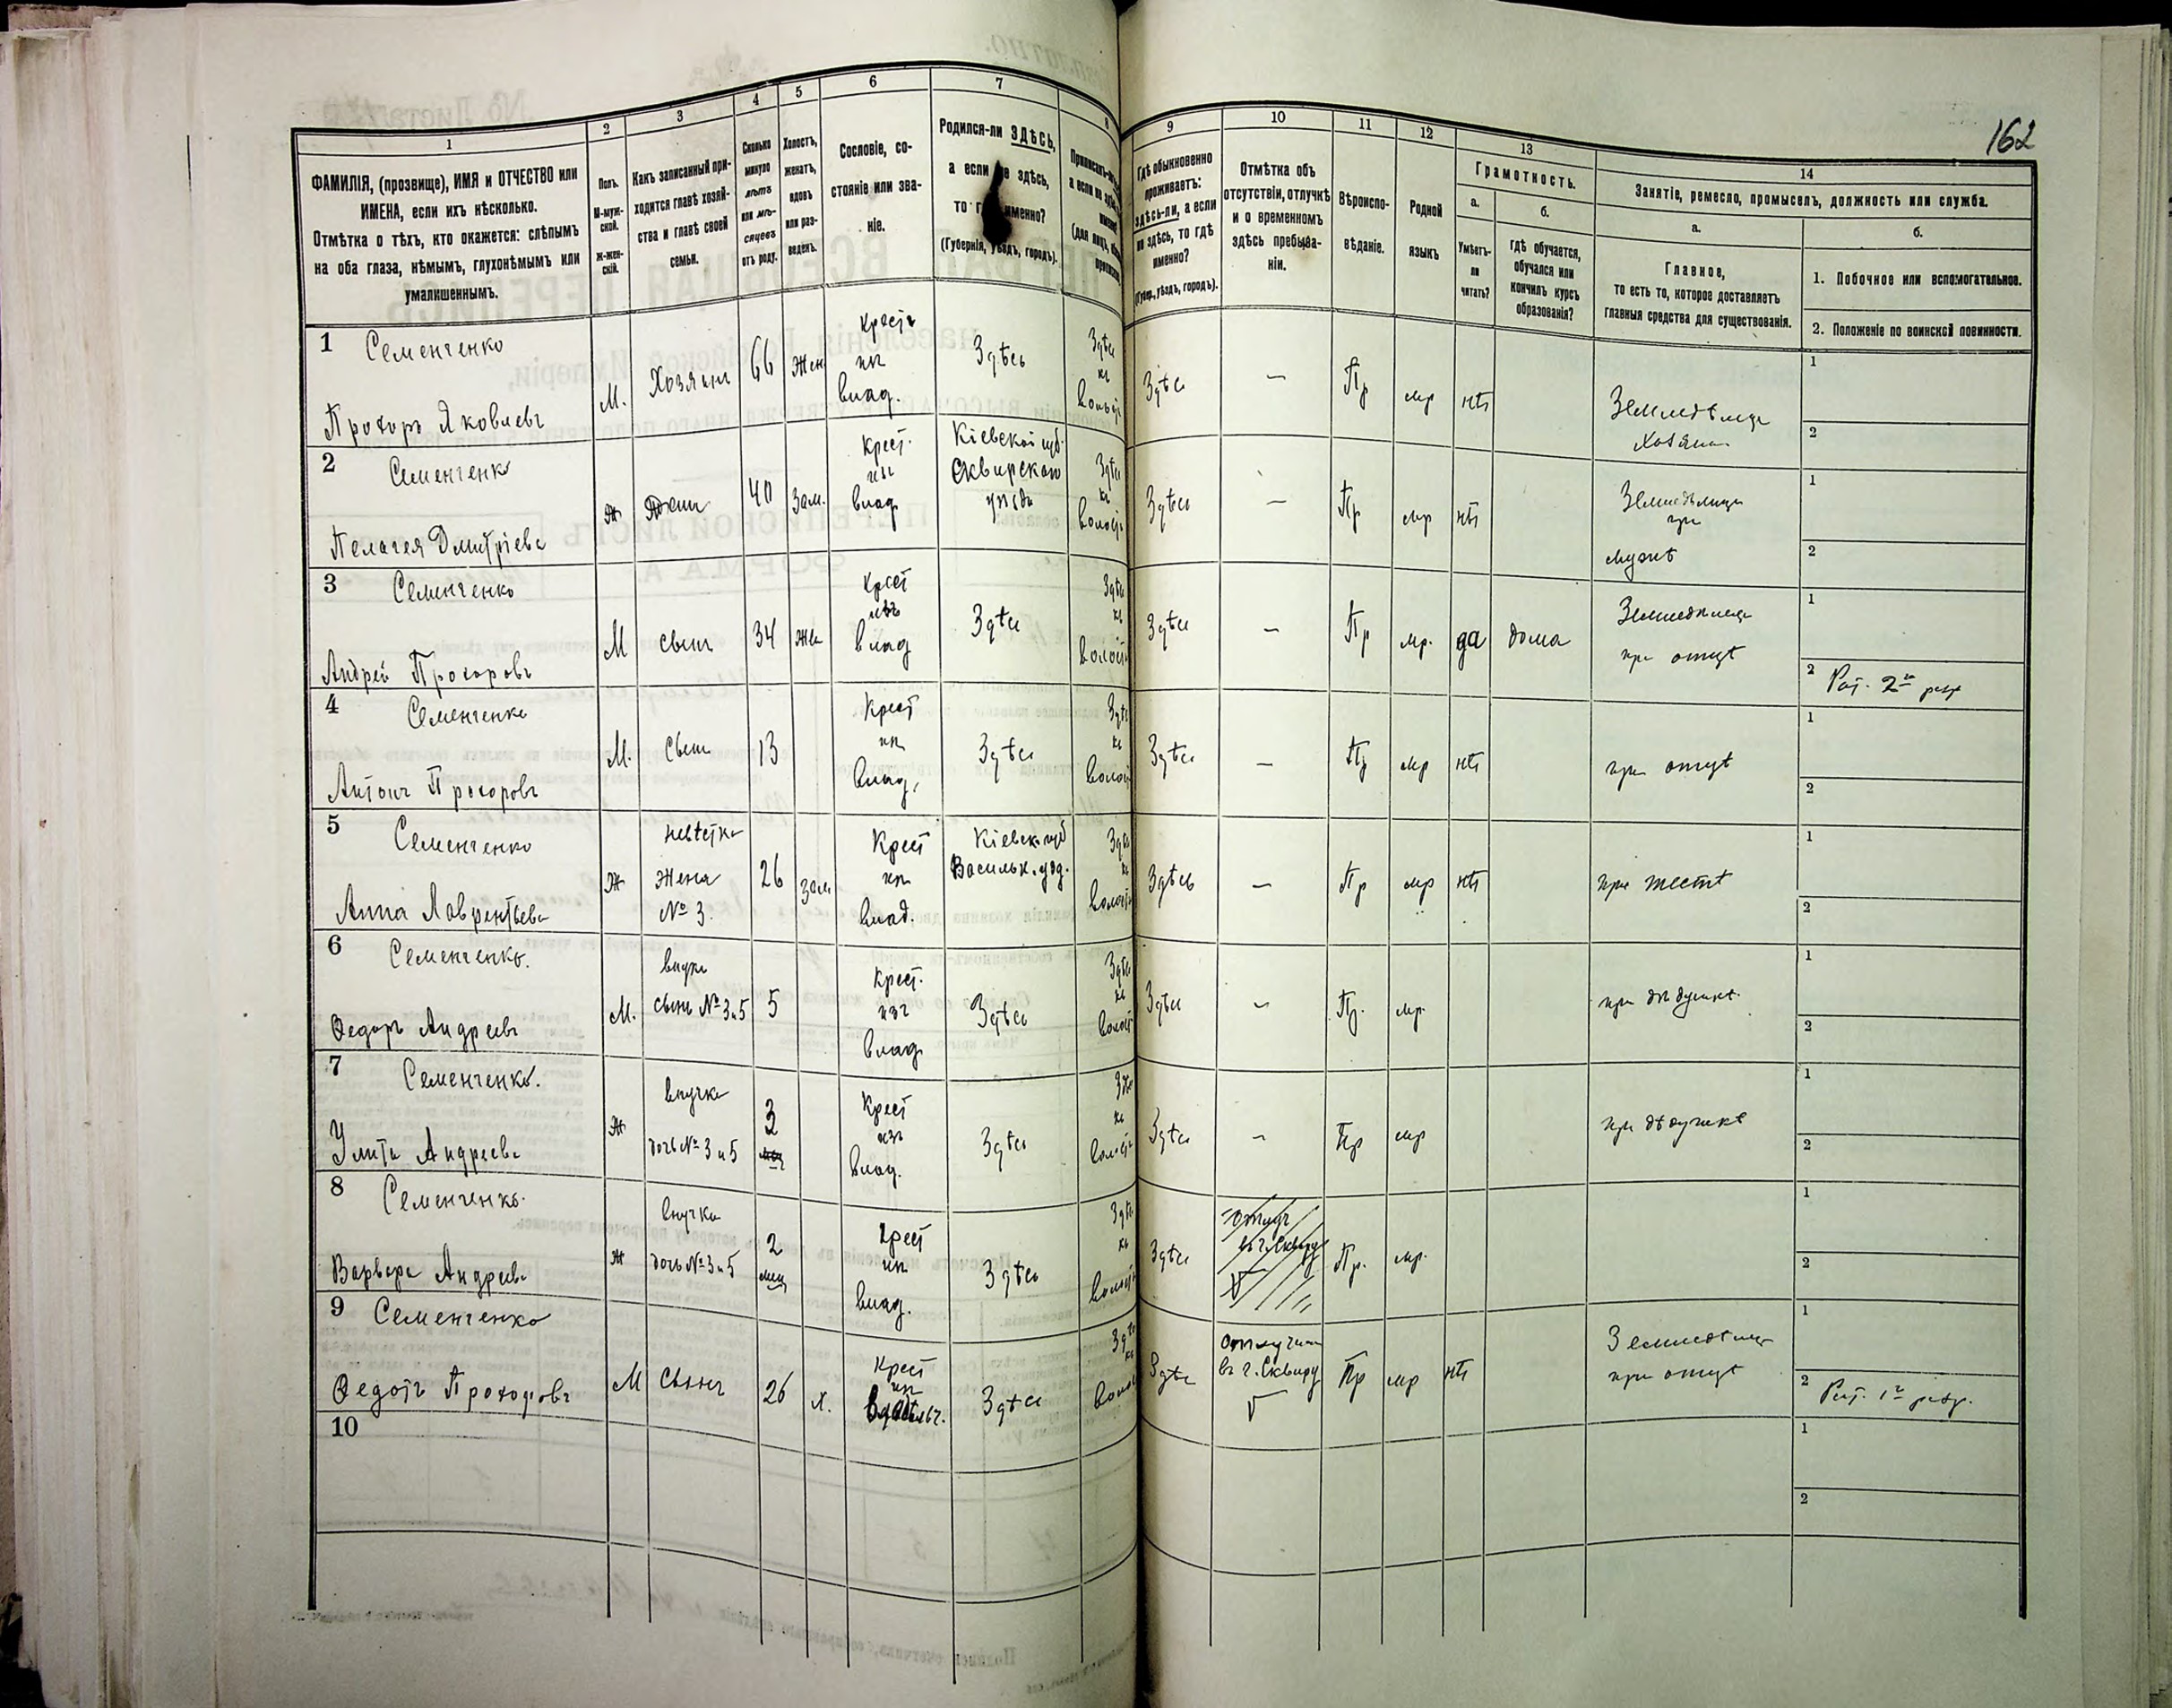 162
1
2
3
4
5
6
7
8
9
10
11
12
13
14
ФАМИЛІЯ, (прозвище), ИМЯ и ОТЧЕСТВО или
ИМЕНА, если ихъ нѣсколько.
Отмѣтка о тѣхъ, кто окажется: слѣпымъ
на оба глаза, нѣмымъ, глухонѣмымъ или
умалишеннымъ.
Полъ.
М-муж-
ской.
Ж-жен-
скій.
Какъ записанный при-
ходится главѣ хозяй-
ства и главѣ своей
семьи.
Сколько
минуло
лѣтъ
или мѣ-
сяцевъ
отъ роду.
Холостъ,
женатъ,
вдовъ
или раз-
веденъ.
Сословіе, со-
стояніе или зва-
ніе.
Родился-ли ЗДѢСЬ,
а если не здѣсь,
то гдѣ именно?
(Губернія, уѣздъ, городъ).
Гдѣ обыкновенно
проживаетъ:
здѣсь-ли, а если
не здѣсь, то гдѣ
именно?
(Губер., уѣздъ, городъ).
Отмѣтка объ
отсутствіи, отлучкѣ
и о временномъ
здѣсь пребыва-
ніи.
Вѣроиспо-
вѣданіе.
Родной
языкъ
Грамотность.
а.
Умѣетъ-
ли
читать?
б.
гдѣ обучается,
обучался или
кончилъ курсъ
образованія?
Занятіе, ремесло, промыселъ, должность или служба.
а.
Главное,
то есть то, которое доставляетъ
главныя средства для существованія.
б.
1. Побочное или вспомогательное.
2. Положеніе по воинской повинности.
1 Семенченко
Прохоръ Яковлевъ
М.
Хозяинъ
66
Жен
Крест
изъ
влад.
Здѣсь
Здѣсь
—
Пр
мр
нѣт
Земледѣлецъ
хозяинъ
1
2
2 Семенченко
Пелагея Дмитріева
Ж
Жена
40
Зам.
Крест.
изъ
влад
Кіевской губ.
Сквирскаго
уѣзда
Здѣсь
—
Пр
мр
нѣт
Земледѣлица
при
мужѣ
1
2
3 Семенченко
Андрей Прохоровъ
М
сынъ
34
Жен
Крест
изъ
влад
Здѣсь
Здѣсь
—
Пр
мр.
да
дома
Земледѣлецъ
при отцѣ
1
2 Рат. 2го разр
4 Семенченко
Антонъ Прохоровъ
М.
Сынъ
13
Крест
изъ
влад.
Здѣсь
Здѣсь
—
Пр
мр
нѣт
при отцѣ
1
2
5 Семенченко
Анна Лаврентьева
Ж
невѣстка
жена
№ 3.
26
зам
Крест
изъ
влад.
Кіевск. губ
Васильк. уѣд.
Здѣсь
—
Пр
мр
нѣт
при тестѣ
1
2
6 Семенченко.
Ѳедоръ Андреевъ
М.
внукъ
сынъ № 3 и 5
5
Крест.
изъ
влад
Здѣсь
Здѣсь
—
Пр.
мр.
при дѣдушкѣ.
1
2
7 Семенченко.
Улита Андреева
Ж
внучка
дочь № 3 и 5
3
Крест
изъ
влад.
Здѣсь
Здѣсь
—
Пр
мр
при дѣдушкѣ
1
2
8 Семенченко.
Варвара Андреева
Ж
внучка
дочь № 3 и 5
2
мец
Крест
изъ
влад.
Здѣсь
Здѣсь
Пр.
мр.
1
2
9 Семенченко
Ѳедотъ Прохоровъ
М
Сынъ
26
х.
Крест
изъ
Здѣсь
Здѣсь
Отлучил
въ г. Сквиру
Пр
мр
нѣт
Земледѣлецъ
при отцѣ
1
2 Рат. 1го разр.
10
1
2